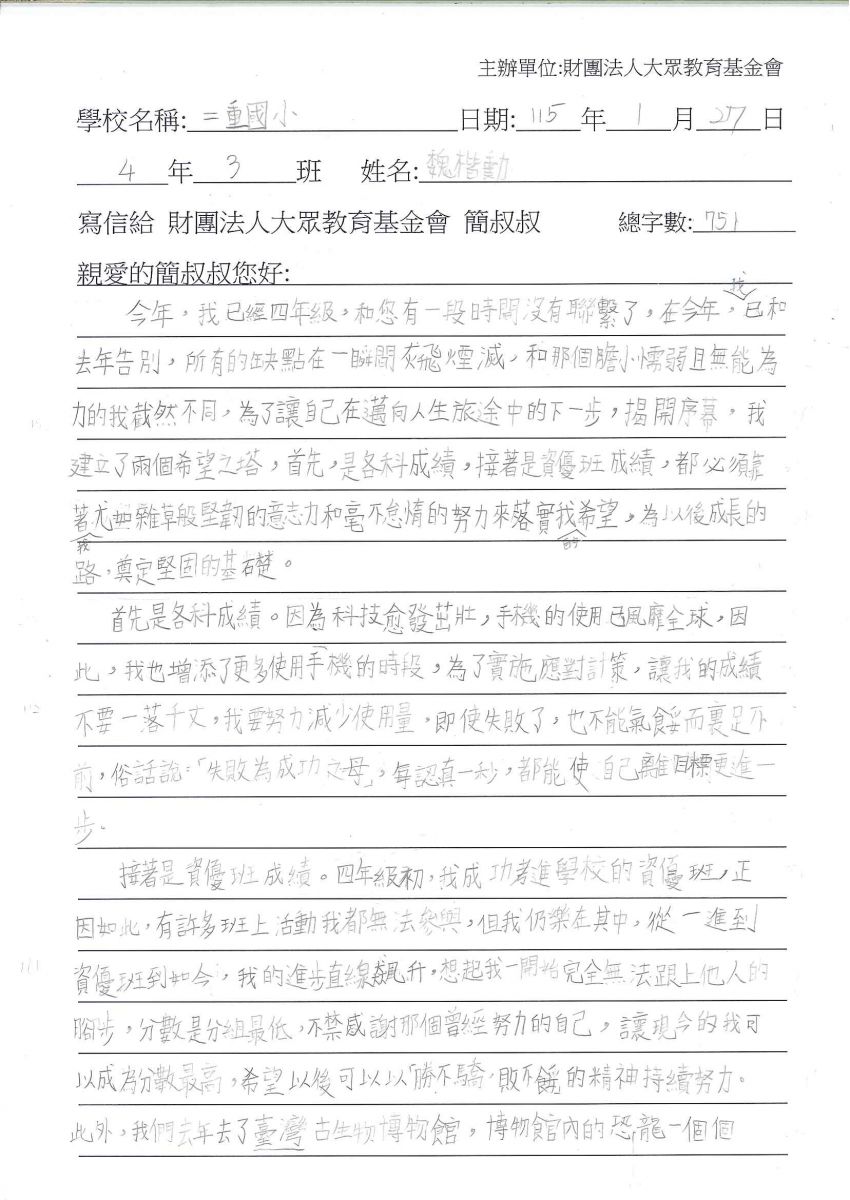 主辦單位:財團法人大眾教育基金會
學校名稱:二重國小 日期:115年1月27日
4年3班 姓名:魏楷勳
寫信給 財團法人大眾教育基金會 簡叔叔 總字數:751
親愛的簡叔叔您好:
今年,我已經四年級,和您有一段時間沒有聯繫了,在今年,我已和
去年告別,所有的缺點在一瞬間灰飛煙滅,和那個膽小懦弱且無能為
力的我截然不同,為了讓自己在邁向人生旅途中的下一步,揭開序幕,我
建立了兩個希望之塔,首先,是各科成績,接著是資優班成績,都必須靠
著我尤如雜草般堅韌的意志力和毫不怠惰的努力來落實我的希望,為以後成長的
路,奠定堅固的基礎。
首先是各科成績。因為科技愈發茁壯,手機的使用已風靡全球,因
此,我也增添了更多使用手機的時段,為了實施應對計策,讓我的成績
不要一落千丈,我要努力減少使用量,即使失敗了,也不能氣餒而裹足不
前,俗話說:「失敗為成功之母」,每認真一秒,都能使自己離目標更進一
步。
接著是資優班成績。四年級初,我成功考進學校的資優班,正
因如此,有許多班上活動我都無法參與,但我仍樂在其中,從一進到
資優班到如今,我的進步直線飆升,想起我一開始完全無法跟上他人的
腳步,分數是分組最低,不禁感謝那個曾經努力的自己,讓現今的我可
以成為分數最高,希望以後可以以「勝不驕,敗不餒」的精神持續努力。
此外,我們去年去了臺灣古生物博物館,博物館內的恐龍一個個